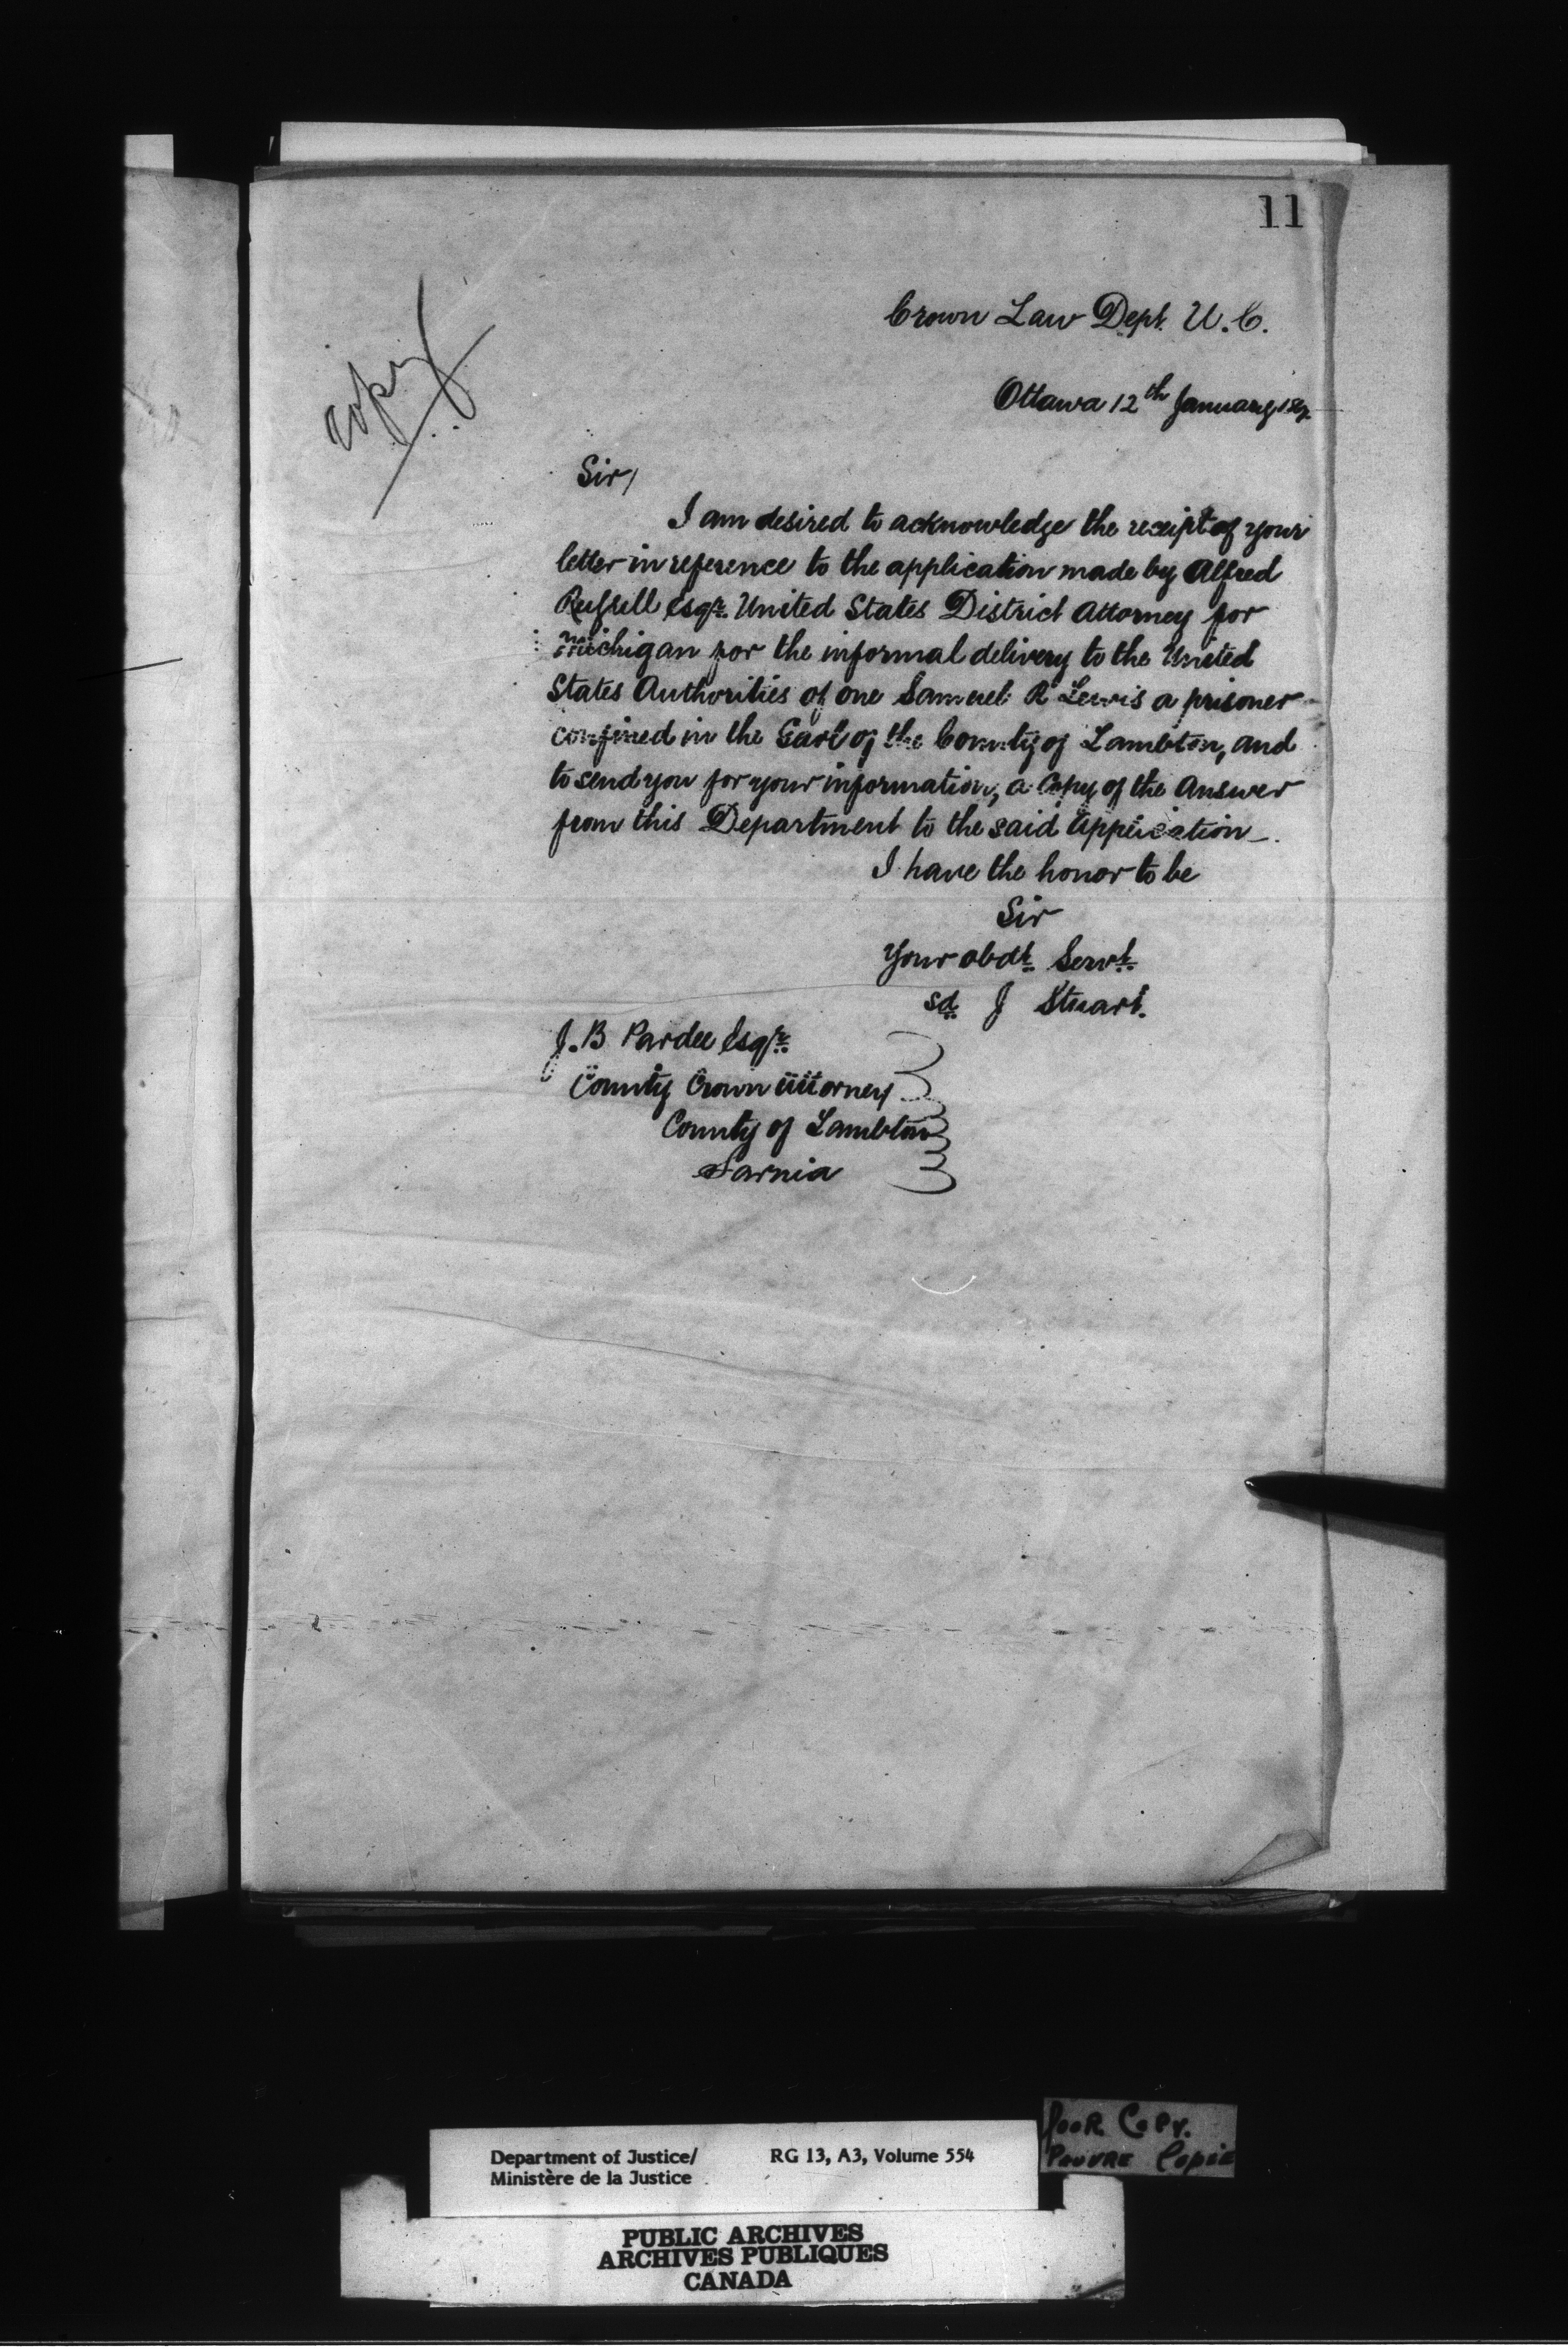 11
Copy
Crown Law Dept. U.C.
Ottawa 12th January 187
Sir/
I am desired to acknowledge the receipt of your
letter in reference to the application made by Alfred
Russell Esqr. United States District Attorney for
Michigan for the informal delivery to the United
States Authorities of one Samuel R Lewis a prisoner
confined in the Gaol of the County of Lambton, and
to send you for your information, a Copy of the Answer
from this Department to the said Application.
I have the honor to be
Sir
Your obdt. Servt.
sd. J Stuart.
J.B Pardee Esqr.
County Crown Attorney
County of Lambton
Sarnia
Department of Justice/ RG 13, A3, Volume 554
Ministère de la Justice
PooR CoPy.
PAUVRE Copie
PUBLIC ARCHIVES
ARCHIVES PUBLIQUES
CANADA